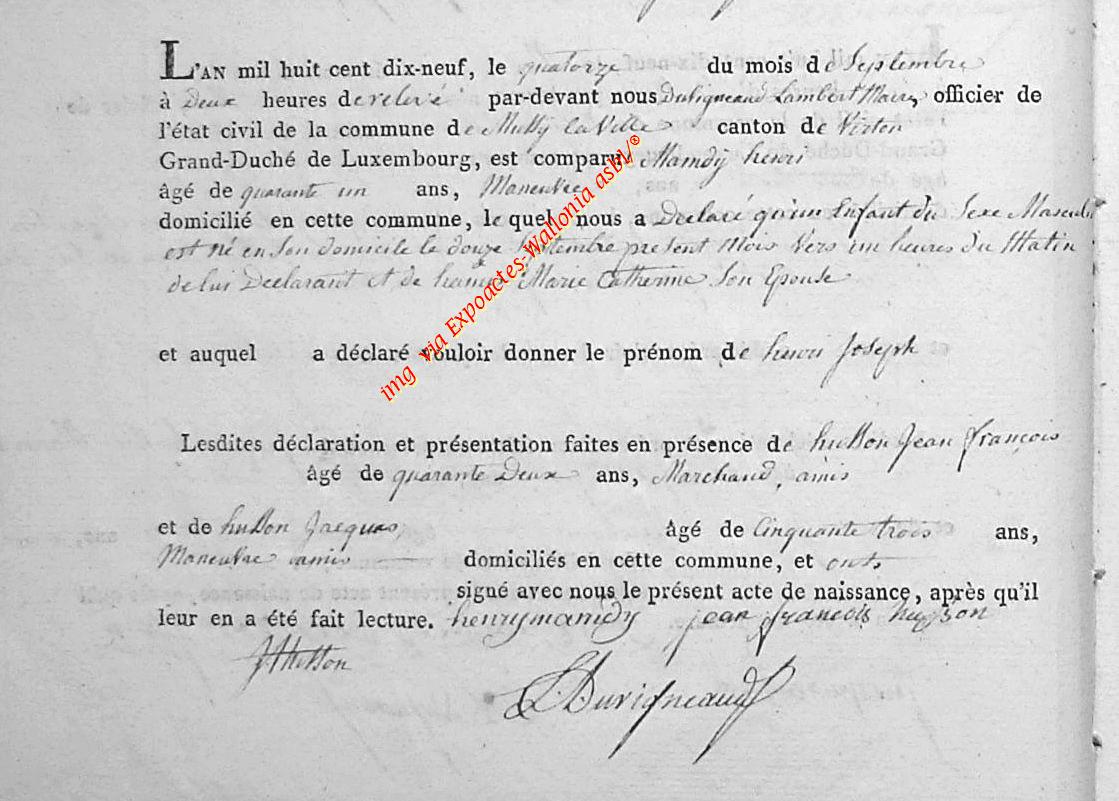 L'AN mil huit cent dix-neuf, le quatorze du mois de Septembre
à Deux heures de relevé par-devant nous Duvigneaud Lambert Maire officier de
l'état civil de la commune de Mussy la Ville canton de Virton
Grand-Duché de Luxembourg, est comparu Mamdy henri
âgé de quarante un ans, Maneuvre
domicilié en cette commune, lequel nous a Declaré qu'un Enfant du Sexe Masculin
est Né en Son domicile le douze Septembre présent Mois Vers un heures du Matin
de lui Declarant et de Marie Catherine Son Epouse
et auquel a déclaré vouloir donner le prénom de henri Joseph
Lesdites déclaration et présentation faites en présence de husson Jean françois
âgé de quarante Deux ans, Marchand, amis
et de husson Jacques âgé de Cinquante trois ans,
Maneuvre amis domiciliés en cette commune, et onts
signé avec nous le présent acte de naissance, après qu'il
leur en a été fait lecture. henrymamdy jean francois husson
JHusson
L Duvigneaud
img via Expoactes-Wallonia asbl/®